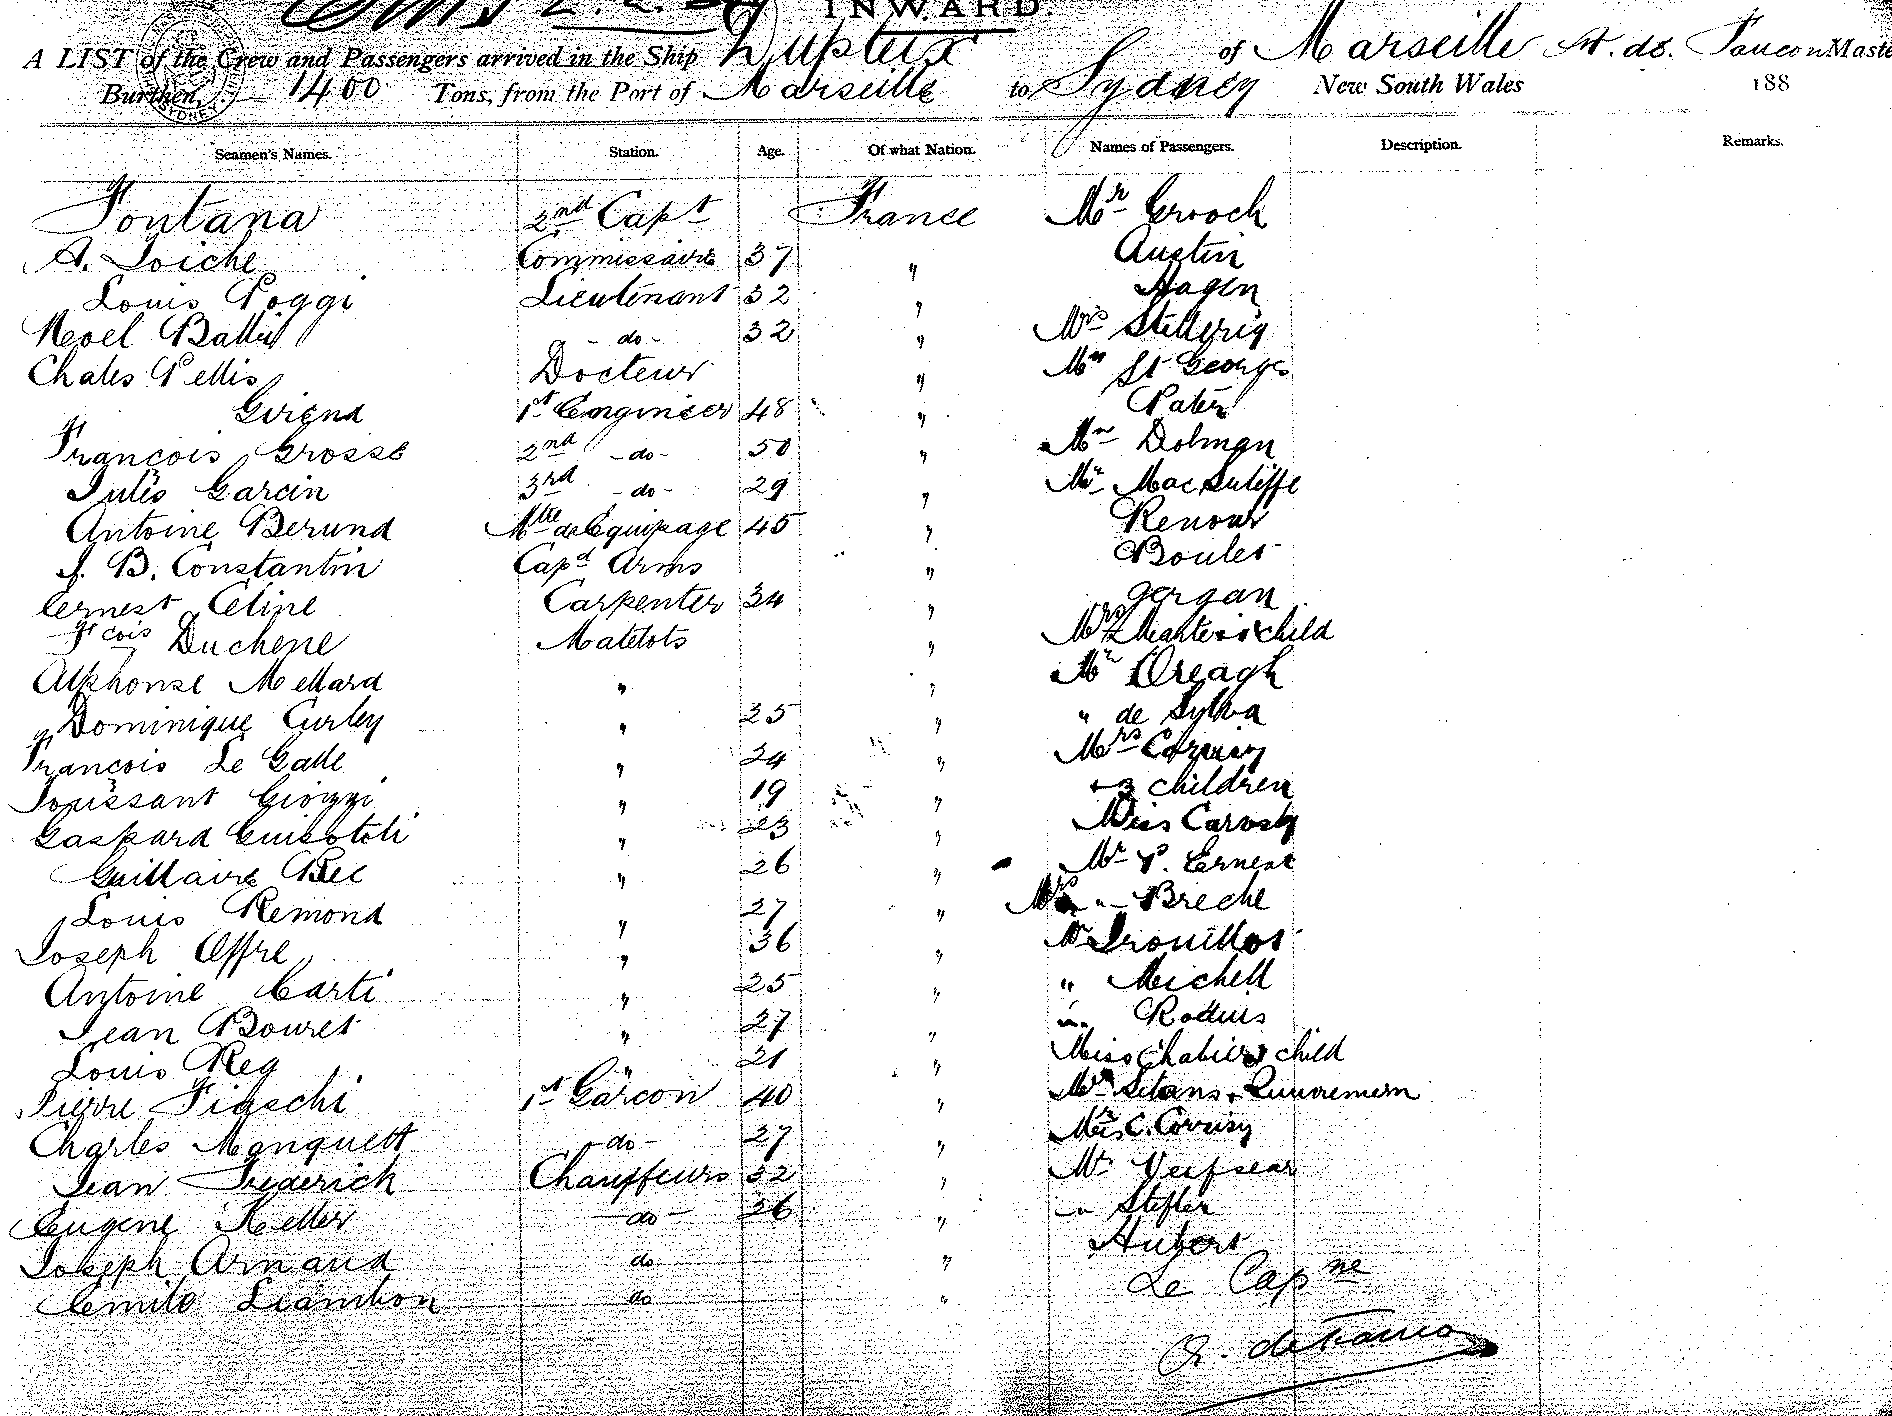 INWARD.
A LIST of the Crew and Passengers arrived in the Ship Dupleix of Marseille A. de. Faucon Maste
Burthen, 1400 Tons, from the Port of Marseille to Sydney New South Wales 188
Seamen's Names. Station. Age. Of what Nation. Names of Passengers. Description. Remarks.
Fontana 2nd Capt France Mr Crooch
A. Loiche Commissaire 37 " Austin
Louis Poggi Lieutenant 32 " Hagen
Noel -do- 32 " Mrs
Chales Pellis Docteur " Mr St Georges
1st Engineer 48 " Pater
Francois Grosse 2nd -do- 50 " Mr Dolman
Jules Garcin 3rd -do- 29 " Mr Mac Suliffe
Antoine Berund Mtre de Equipage 45 " Renour
J. B. Constantin Capd Arms " Boules
Ernest Celine Carpenter 34 " Gergan
Fcois Duchene Matelots " Mrs child
Alphonse Mellard " " Mr Creagh
Dominique Curley " 25 " " de Sylva
Francois Le Galle " 24 " Mrs
Toussant Giozzi " 19 " + 3 children
Gaspard " 23 " Miss
Guillaire Bec " 26 " Mr P. Ernest
Louis Remond " 27 " Breche
Joseph Offre " 36 " Mr Trouillot
Antoine Carti " 25 " " Michell
Jean Bouret " 27 "
Louis Reg " 21 " Miss child
Pierre Fiaschi 1st Garcon 40 " Mr
Charles Manquett -do- 27 " C.
Jean Frederick Chauffeurs 32 " Mr
Eugene Keller do- 26 "
Joseph Arnaud do " Hubert
Emile do "
Le Capne